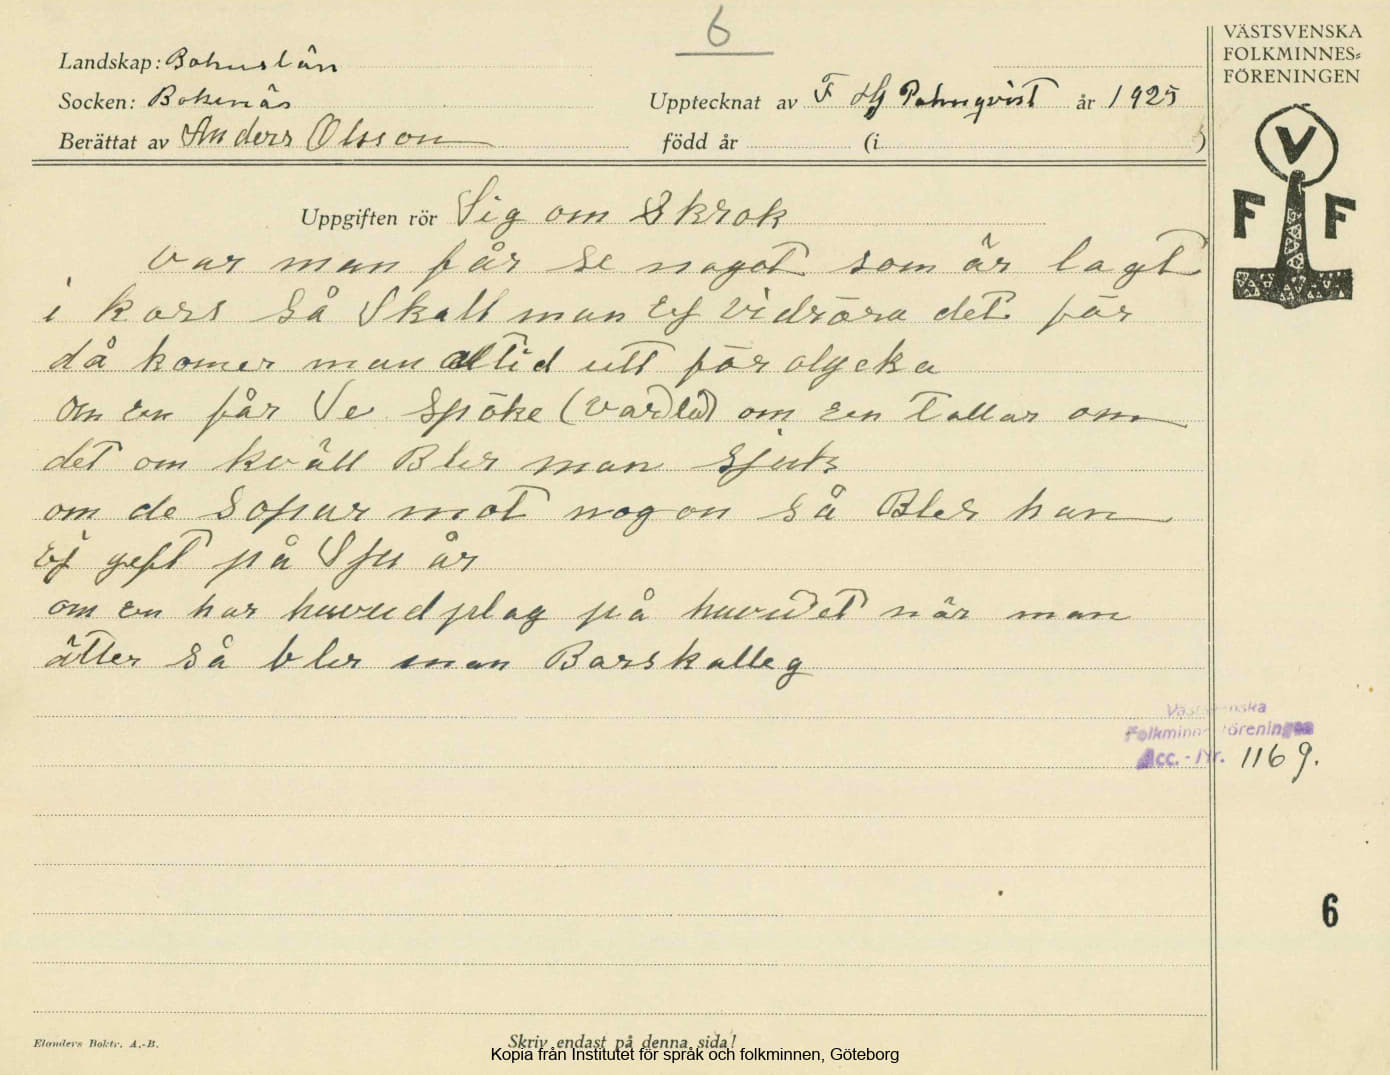 6
VÄSTSVENSKA
FOLKMINNES=
FÖRENINGEN
Landskap: Bohuslän
Socken: Bokenäs
Upptecknat av F Hj Palmqvist år 1925
Berättat av Anders Olsson född år (i )
V
F F
Uppgiften rör Sig om Skrok
var man får se nogot som är lagt
i kors så skall man Ej vidröra det för
då komer man alltid utt för olycka
om en får Se Spöke (vardù) om en tallar om
det om kväll Bler man sjuk
om de sopar mot nogon så Bler han
Ej geft på Sju år
om en har huvudplag på huvudet när man
ätter så bler man Barskalleg
Västsvenska
Folkminnesföreningen
Acc.-Nr. 1169.
6
Elanders Boktr. A.-B.
Skriv endast på denna sida!
Kopia från Institutet för språk och folkminnen, Göteborg